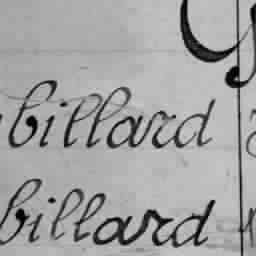 billard
billard